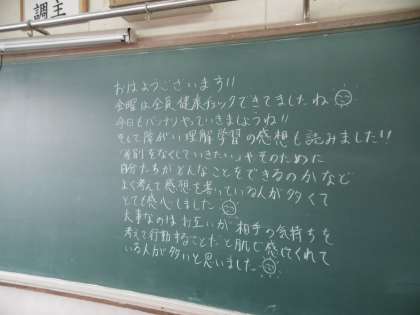 調主
おはようございます!!
金曜は全員健康チェックできてましたね
今日もバッチリやっていきましょうね!!
そして障がい理解学習の感想も読みました!!
「差別をなくしていきたい」やそのために
自分たちがどんなことをできるのかなど
よく考えて感想を書いている人が多くて
とても感心しました
大事なのはお互いが相手の気持ちを
考えて行動することだと肌で感じてくれて
いる人が多いと思いました